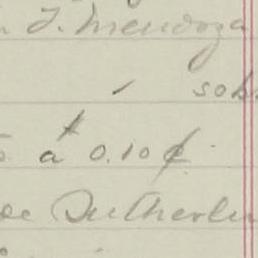 J. Mendoza
sob
á 0.10 ¢
de Sutherlin